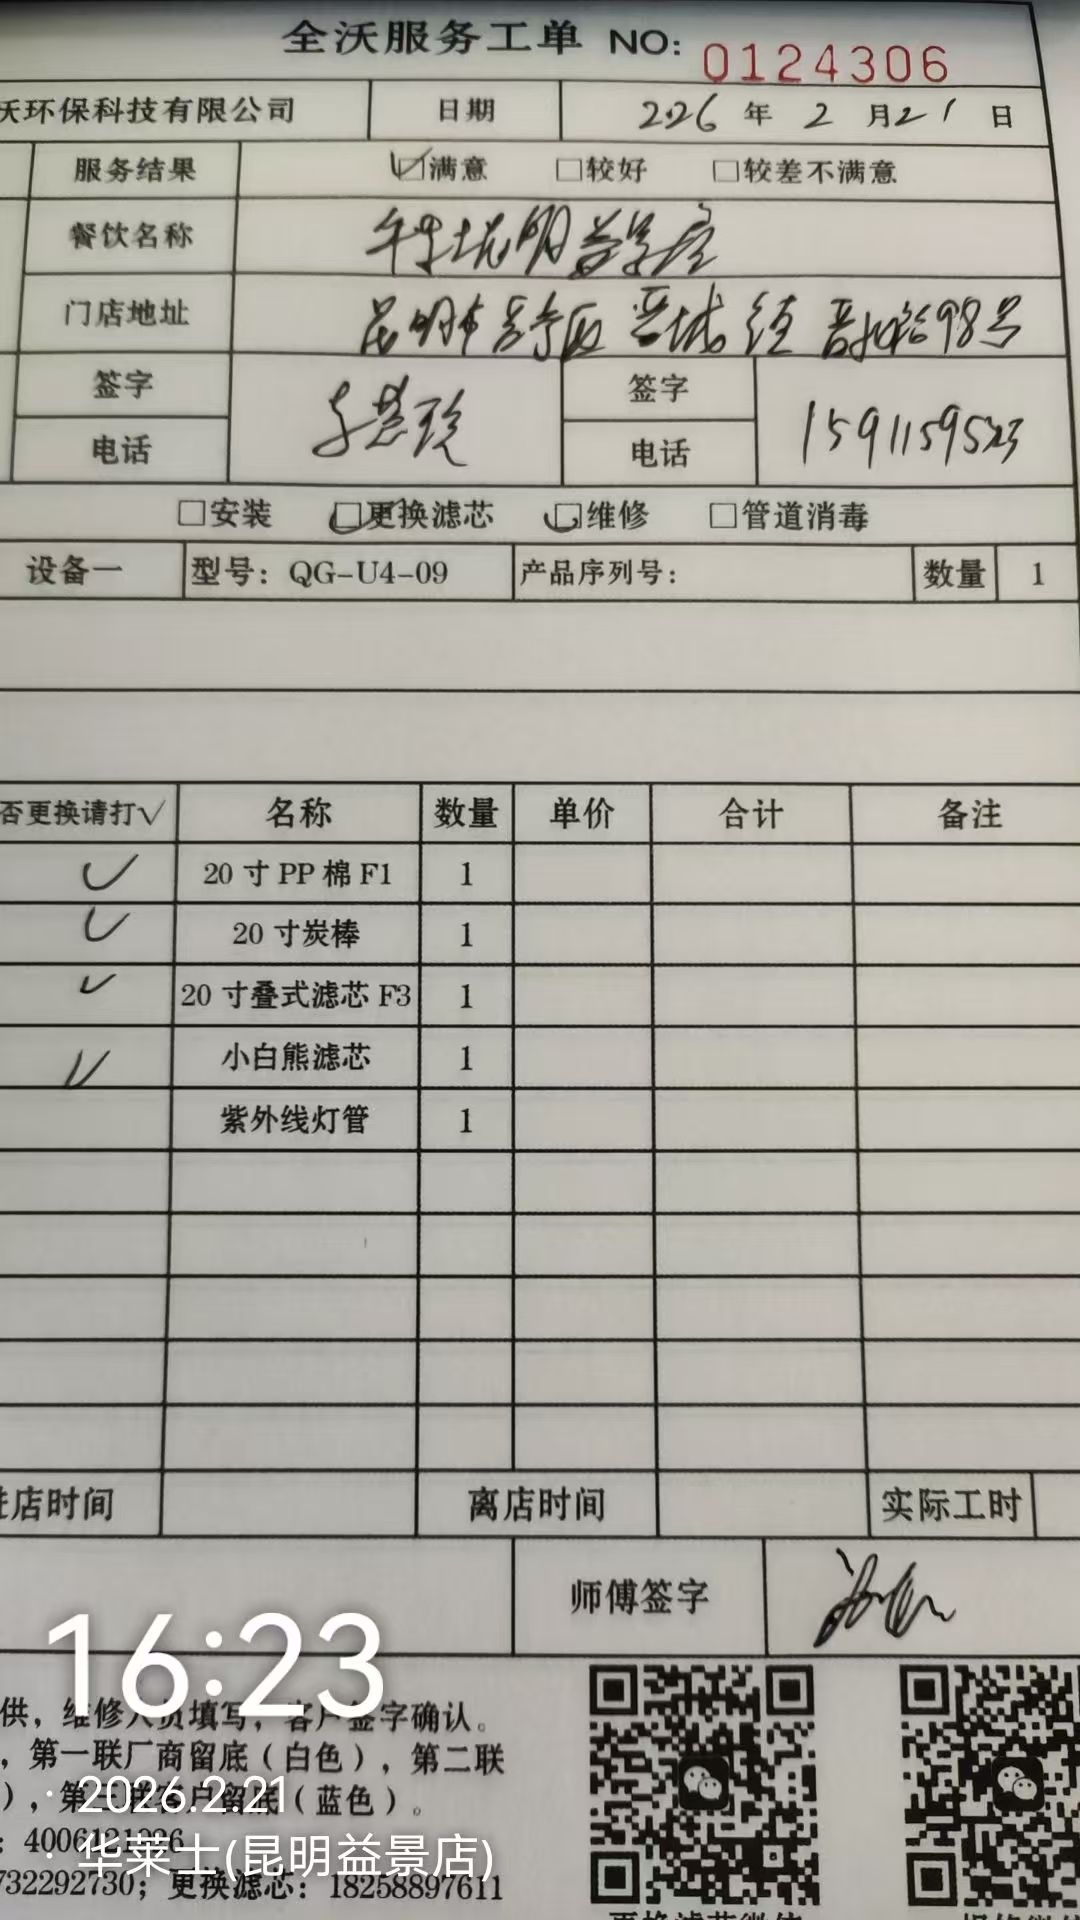 全沃服务工单 NO: 0124306
沃环保科技有限公司 日期 2026 年 2 月 21 日
服务结果 ☑满意 □较好 □较差不满意
餐饮名称 华莱士昆明益景店
门店地址 昆明市晋宁区晋城镇 98号
签字 签字
电话 电话 1591159523
□安装 ☑更换滤芯 ☑维修 □管道消毒
设备一 型号：QG-U4-09 产品序列号： 数量 1
否更换请打√ 名称 数量 单价 合计 备注
✓ 20 寸 PP 棉 F1 1
✓ 20 寸炭棒 1
✓ 20 寸叠式滤芯 F3 1
✓ 小白熊滤芯 1
紫外线灯管 1
店时间 离店时间 实际工时
师傅签字
16:23
供，维修人员填写，客户签字确认。
，第一联厂商留底（白色），第二联
），第三联客户留底（蓝色）。
2026.2.21
：4006121026
华莱士(昆明益景店)
732292730；更换滤芯：18258897611